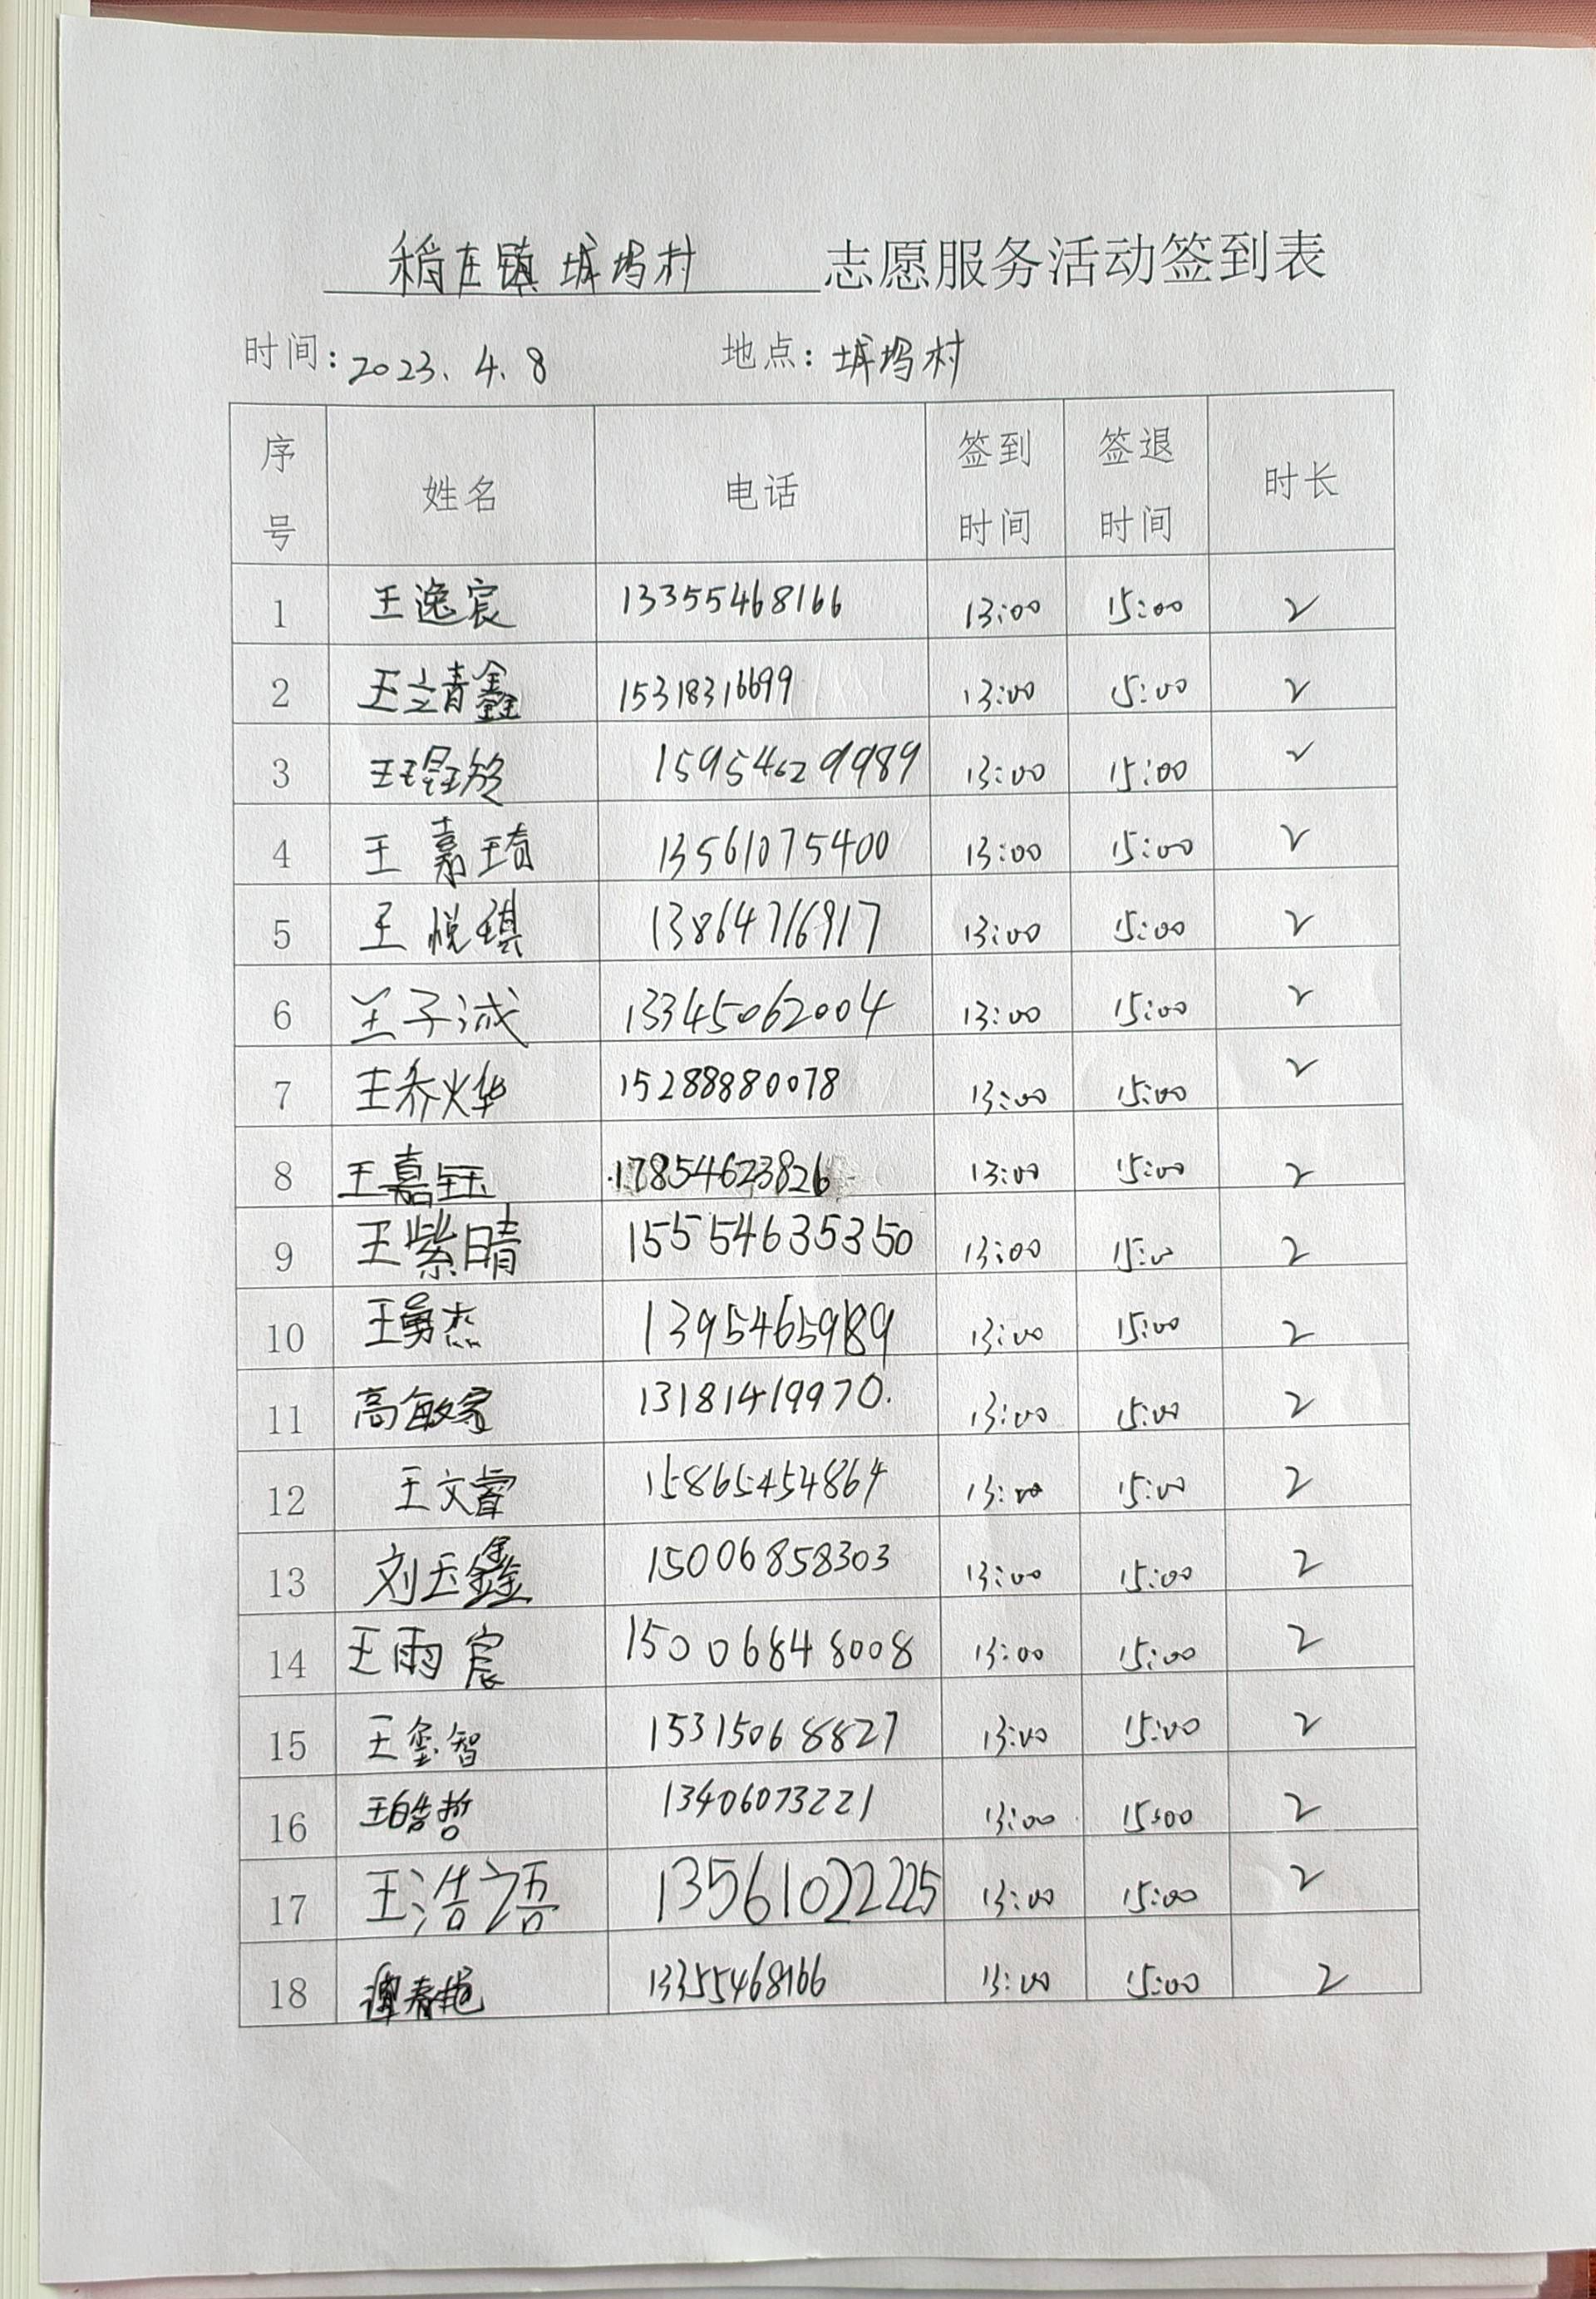 稍庄镇 城坞村 志愿服务活动签到表
时间: 2023.4.8 地点: 城坞村
序号 姓名 电话 签到时间 签退时间 时长
1 王逸宸 13355468166 13:00 15:00 2
2 王立青鑫 15318316699 13:00 15:00 2
3 15954629989 13:00 15:00 2
4 王嘉琦 13561075400 13:00 15:00 2
5 王悦琪 13864716917 13:00 15:00 2
6 王子诚 13345062004 13:00 15:00 2
7 王乔烨 15288880078 13:00 15:00 2
8 王嘉钰 17854623826 13:00 15:00 2
9 王紫晴 15554635350 13:00 15:00 2
10 王勇杰 1395465989 13:00 15:00 2
11 高敏家 13181419970. 13:00 15:00 2
12 王文睿 15865454864 13:00 15:00 2
13 刘玉鑫 15006858303 13:00 15:00 2
14 王雨宸 15006848008 13:00 15:00 2
15 王玺智 15315068827 13:00 15:00 2
16 王皓哲 13406073221 13:00 15:00 2
17 王浩语 13561022225 13:00 15:00 2
18 谭春艳 13355468166 13:00 15:00 2